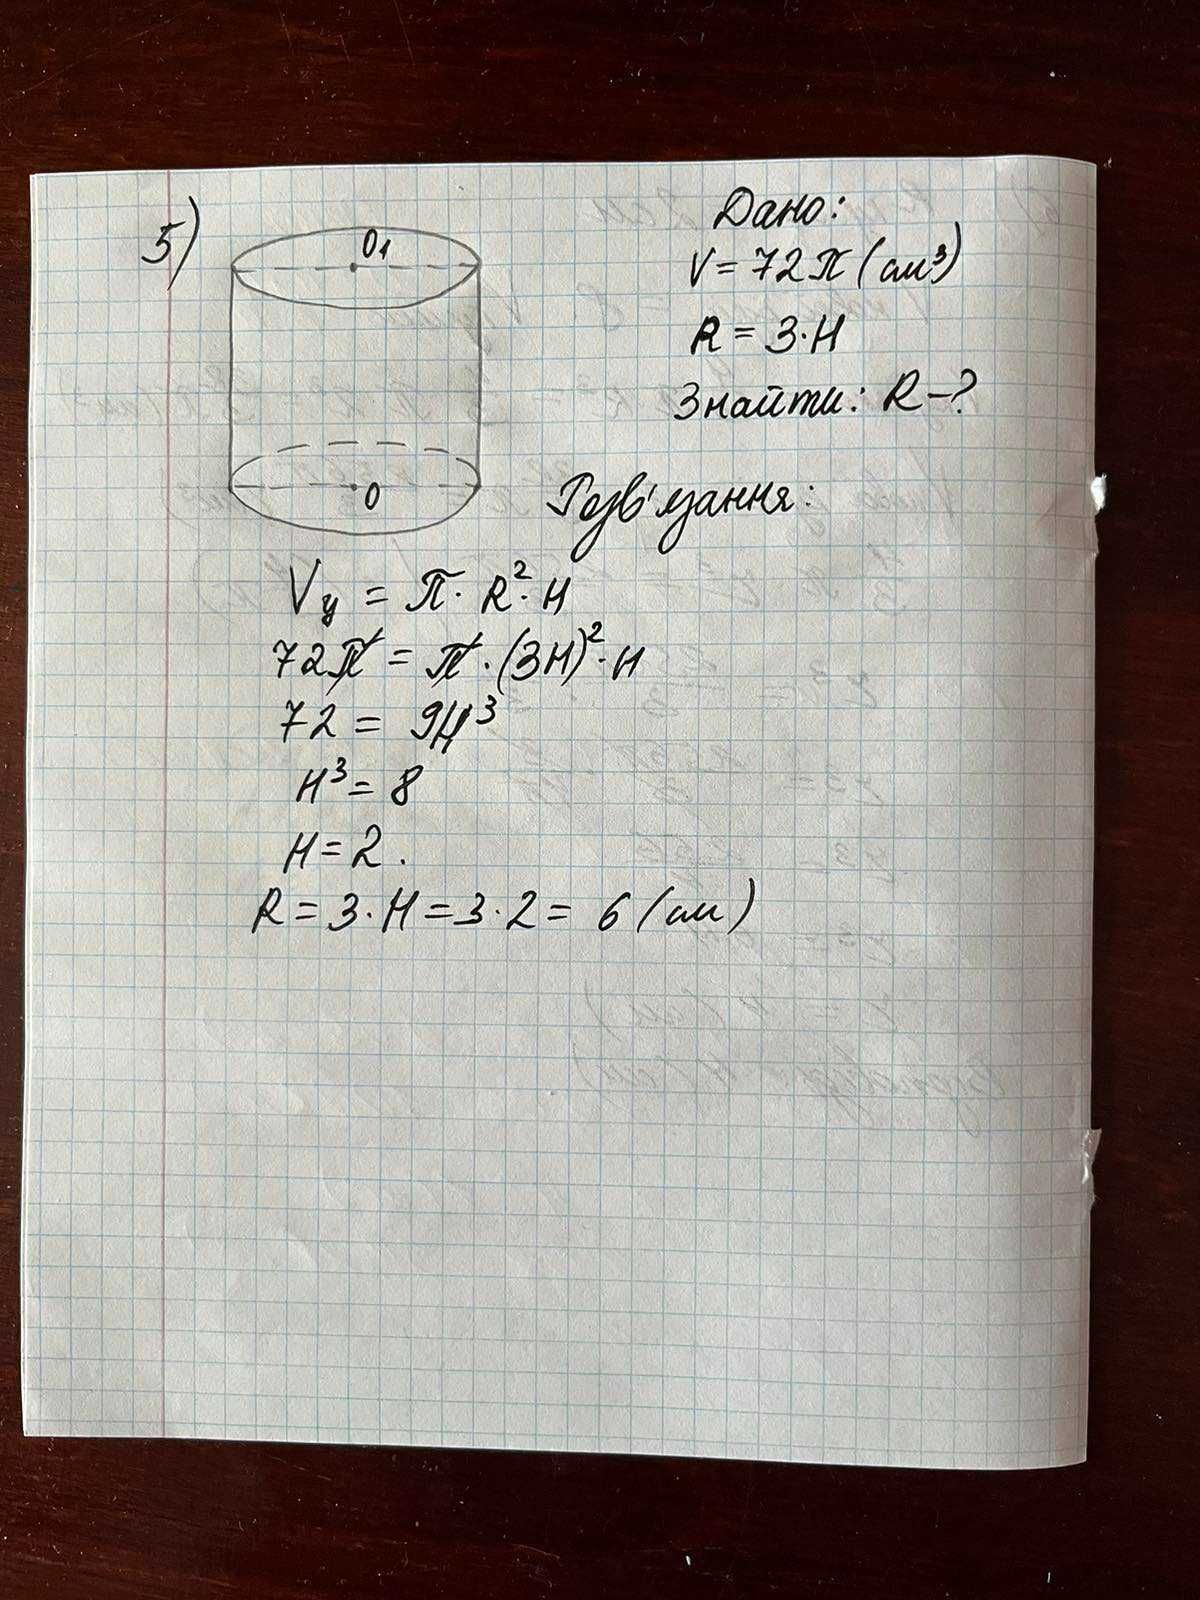 5)
O₁
O
Дано:
V = 72π (см³)
R = 3·H
Знайти: R - ?
Розв'язання:
Vц = π · R² · H
72π = π · (3H)² · H
72 = 9H³
H³ = 8
H = 2.
R = 3·H = 3·2 = 6 (см)